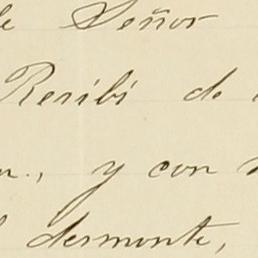 de Señor
Recibí de
, y con
desmonte,